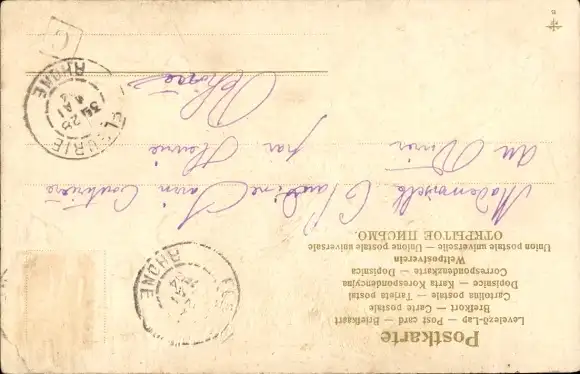 Postkarte
Levelező-Lap — Post card — Briefkaart
Brefkort — Carte postale
Cartolina postale — Tarjeta postal
Dopisnice — Karta Korespondencyjna
Correspondenzkarte — Dopisnica
Weltpostverein
Union postale universelle — Unione postale universale
ОТКРЫТОЕ ПИСЬМО.
Mademoiselle Claudine
au
par Fleurie
Rhône
FLEURIE
RHONE
RHONE
C